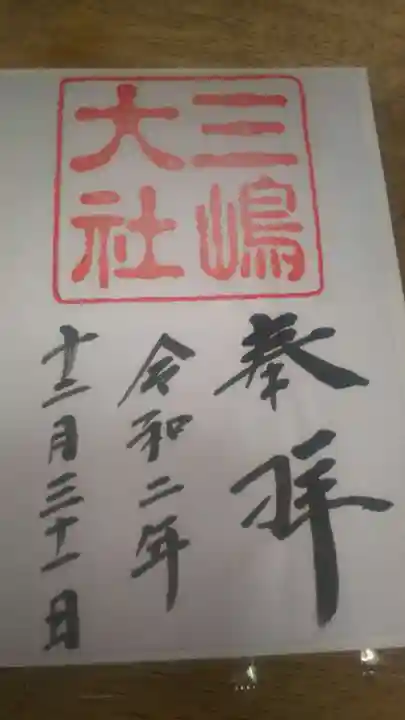 三嶋
大社
奉拝
令和二年
十二月三十一日